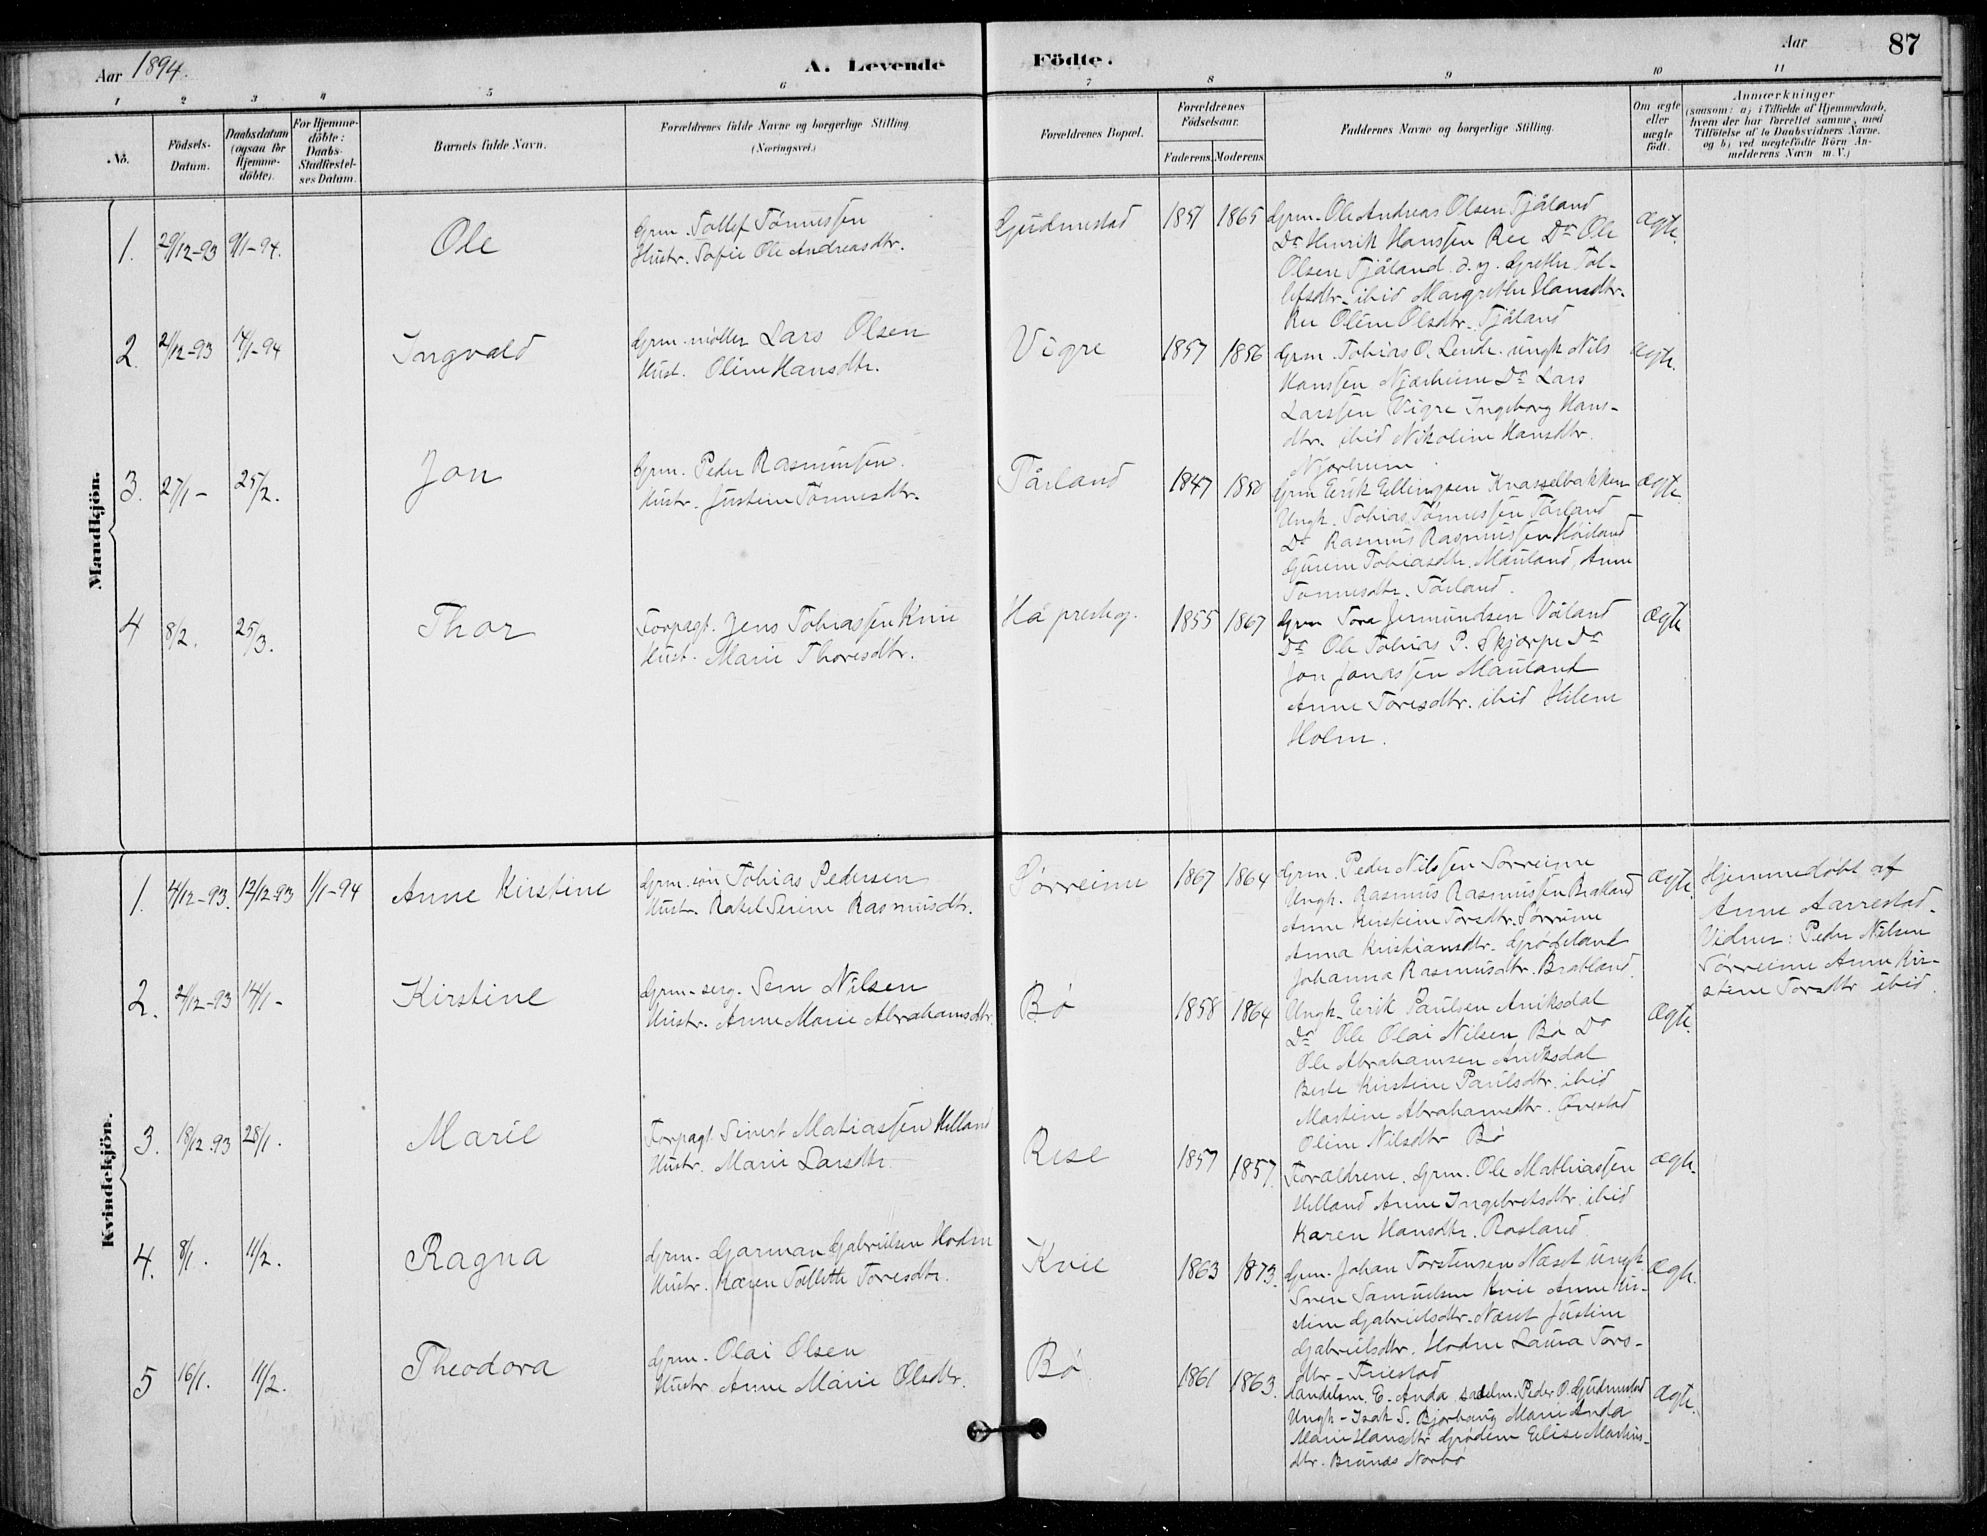 Aar 1894.
A. Levende
Födte.
Aar
87
1 2 3 4 5 6 7 8 9 10 11
No.
Födsels-
Datum.
Daabsdatum
(ogsaa for
Hjemme-
döbte).
For Hjemme-
döbte:
Daabs-
Stadfæstel-
ses Datum.
Barnets fulde Navn.
Forældrenes fulde Navne og borgerlige Stilling
(Næringsvei.)
Forældrenes Bopæl.
Forældrenes
Födselsaar.
Faderens. Moderens.
Faddernes Navne og borgerlige Stilling.
Om ægte
eller
uægte
födt.
Anmærkninger
(saasom: a) i Tilfælde af Hjemmedaab,
hvem der har forrettet samme, med
Tilföielse af to Daabsvidners Navne.
og b) ved uægtefödte Börn An-
melderens Navn m. V.)
Mandkjön.
1. 29/12-93 9/1-94. Ole
Grm. Tollef Tønnessen
Hustr. Sofie Ole Andreasdtr.
Gudmestad 1851 1865
Grm. Ole Andreas Olsen Tjåland
Do Henrik Hanssen Ree Do Ole
Olsen Tjåland. d. y. Grethe Tol-
lefsdtr. ibid Margrethe Hansdtr.
Ree Oline Olsdtr. Tjåland
ægte.
2. 2/12-93 14/1-94 Ingvald
Grm. møller Lars Olsen
Hust. Oline Hansdtr.
Vigre 1857 1856
Grm. Tobias O. Lende. ungk Nils
Hanssen Njærheim Do Lars
Larssen Vigre Ingeborg Hans-
dtr. ibid Nikoline Hansdtr.
Njærheim.
ægte.
3. 27/1- 25/2. Jon
Grm. Peder Rasmussen.
Hustr. Justine Tønnesdtr.
Tårland 1847 1850
Grm Eerik Ellingsen Knasselbakken
Ungk. Tobias Tønnessen Tårland
Do Rasmus Rasmussen Høiland
Gurine Tobiasdtr. Mauland, Anne
Tønnesdtr. Tårland.
ægte
4 8/2. 25/3. Thor
Forpagt. Jens Tobiassen Kvie
Hust. Marie Thoresdtr.
Há presteg. 1855 1867
Grm Tore Jermundsen Våland
Do Ole Tobias P. Skjærpe Do
Jon Jonassen Mauland
Anne Toresdtr. ibid Helene
Holm.
ægte
Kvindekjön.
1. 4/12-93. 12/12-93 1/1-94 Anne Kirstine
Grm. søn Tobias Pedersen
Hustr. Rakel Serine Rasmusdtr.
Sørreime 1867 1864
Grm. Peder Nilssen Sørreime
Ungk. Rasmus Rasmussen Bratland
Anne Kirstine Torsdtr. Sørreime
Anna Kristiansdtr. Grødeland
Johanna Rasmusdtr. Bratland.
ægte.
Hjemmedøbt af
Anne Aarrestad.
Vidner: Peder Nilsen
Sørreime Anne Kir-
stine Torsdtr ibid.
2. 2/12-93 14/1- Kirstine
Grm-serg. Sem Nilsen
Hustr. Anne Marie Abrahamsdtr.
Bø 1858 1864
Ungk. Eerik Paulsen Aniksdal
Do Ole Olai Nilsen Bø Do
Ole Abrahamsen Aniksdal
Berte Kirstine Paulsdtr. ibid
Martine Abrahamsdtr. Ovestad
Oline Nilsdtr Bø
ægte.
3. 18/12.93 28/1. Marie
Forpagt Sivert Matiassen Helland
Hustr. Marie Larsdtr.
Rese 1857 1857.
Forældrene. Grm. Ole Mathiassen
Helland Anne Ingebretsdtr. ibid
Karen Hansdtr. Rosland.
ægte.
4. 8/1. 11/2. Ragna
Grm. Garman Gabrielsen Hodne
Hustr. Karen Tollette Torresdtr.
Kvie 1863 1873.
Grm. Johan Torstensen Næset ungk.
Sven Samuelsen Kvie Anne Kir-
stine Gabrielsdtr. Næset Justine
Gabrielsdtr. Hodne Laura Tors-
dtr - Friestad
ægte.
5 16/1. 11/2. Theodora
Grm. Olai Olsen
Hustr Anne Marie Olsdtr.
Bø. 1861 1863.
Handelsm. E. Anda sadelm. Peder O. Gudmestad
Ungk - Isak S. Bjorhaug Marie Anda
Marie Hansdtr Grødem Elise Martins-
dtr. Brunes Norbø
ægte.